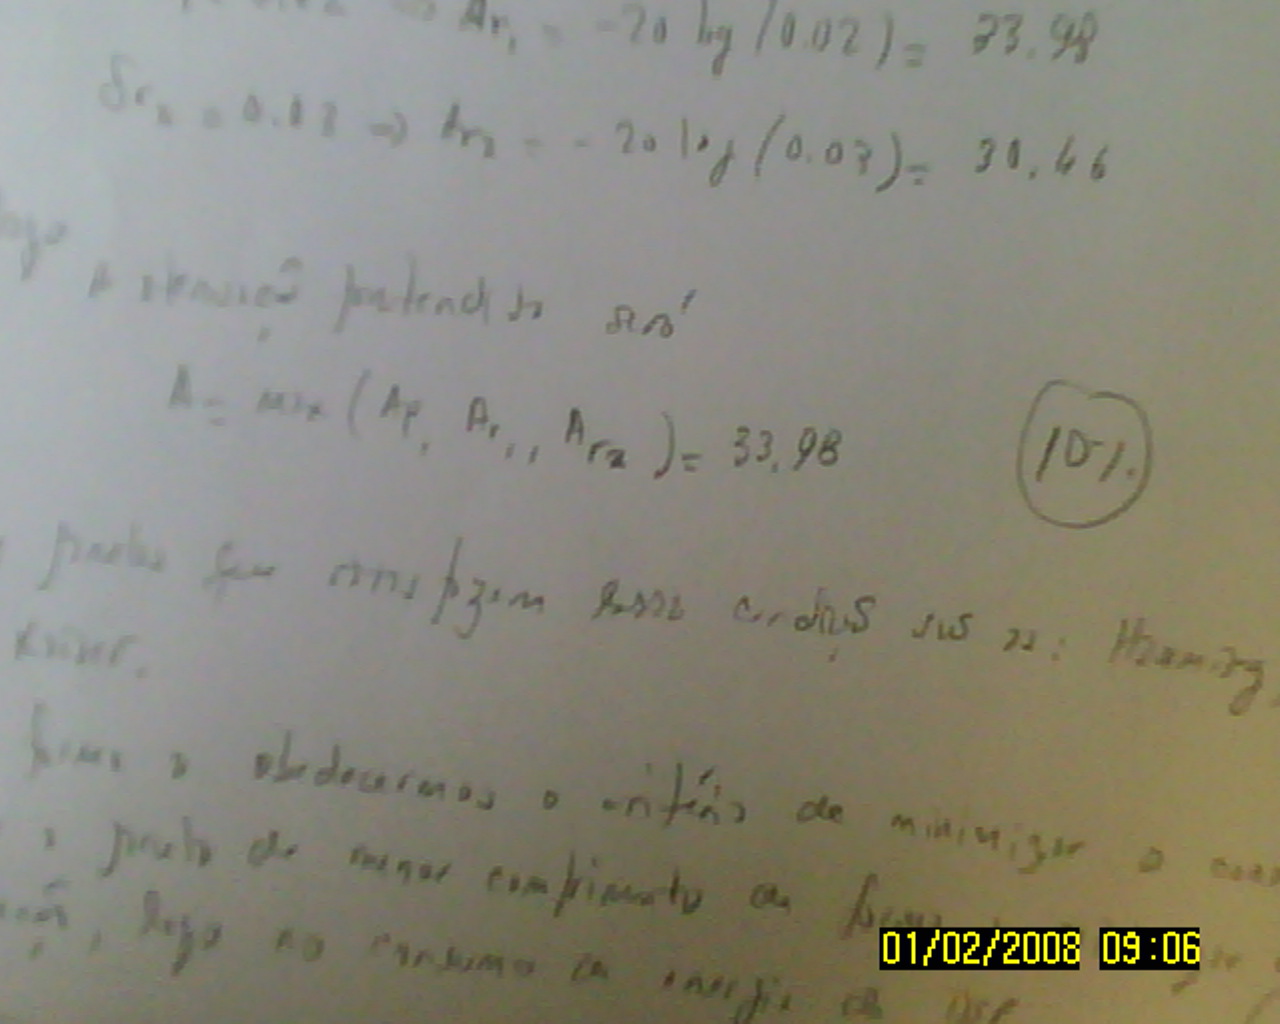 Ar₁ = -20 log (0.02) = 33.98
δr₂ = 0.03 => Ar₂ = -20 log (0.03) = 30.46
logo
A atenuação pretendida será
A = max (Ap, Ar₁, Ar₂) = 33.98
10%
janelas que satisfazem essas condições são as: Hamming,
Kaiser.
forma a obedecermos o critério de minimizar o
a janela de menor comprimento de
logo no consumo de energia do DSP
01/02/2008 09:06